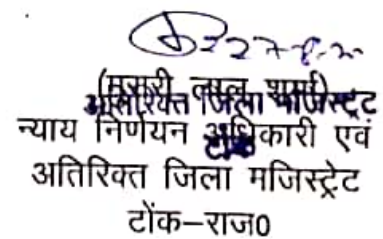 (मुरारी लाल शर्मा)
अतिरिक्त जिला मजिस्ट्रेट
न्याय निर्णयन अधिकारी एवं
टोंक
अतिरिक्त जिला मजिस्ट्रेट
टोंक-राज0